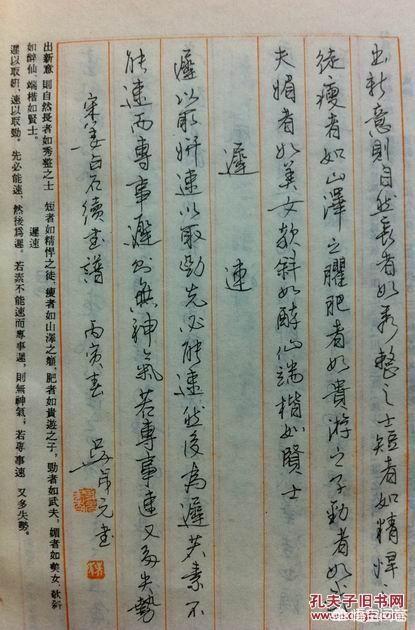 出新意則自然長者如秀整之士短者如精悍之
徒瘦者如山澤之臞肥者如貴游之子勁者如武
夫媚者如美女欹斜如醉仙端楷如賢士
遲速
遲以取妍速以取勁先必能速然後為遲若素不
能速而專事遲則無神氣若專事速又多失勢
宋姜白石續書譜 丙寅春 元書
出新意 則自然長者如秀整之士 短者如精悍之徒 瘦者如山澤之臞，肥者如貴遊之子，勁者如武夫，媚者如美女，欹斜
如醉仙，端楷如賢士。
遲速
遲以取妍，速以取勁。先必能速，然後爲遲。若素不能速而專事遲，則無神氣；若專事速 又多失勢。
孔夫子旧书网